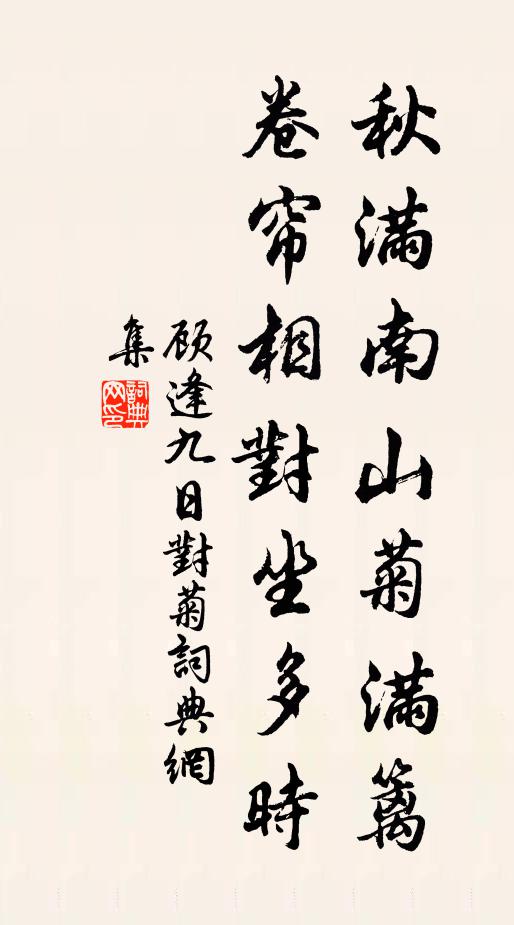 秋满南山菊满篱
卷帘相對坐多時
顾逢九日對菊詞典網
集
詞典網印